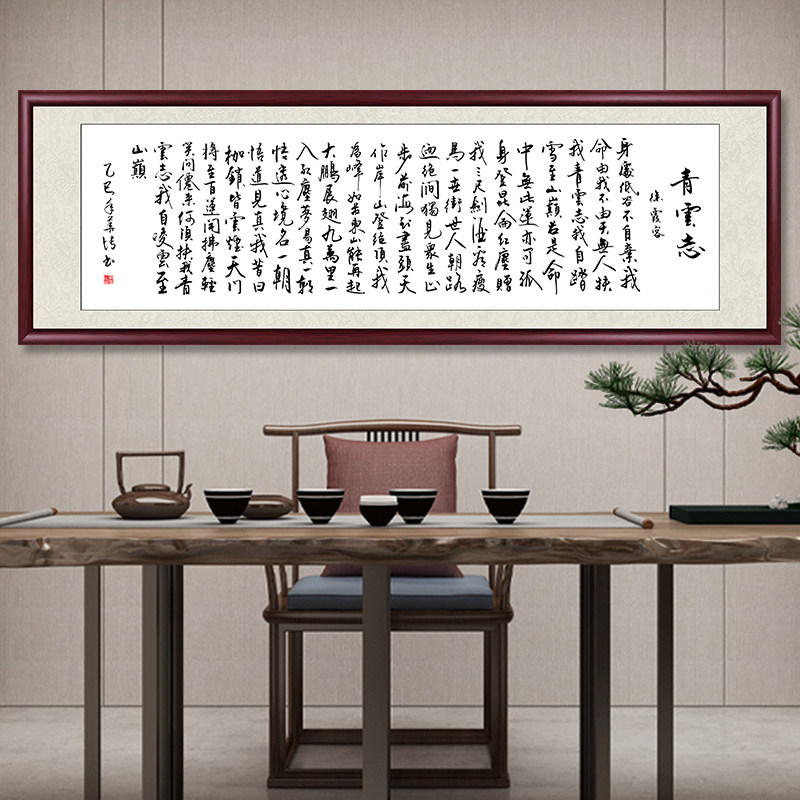 青雲志
身處低谷不自棄我
命由我不由天無人扶
我青雲志我自踏
雪至山巔若是命
中無此運亦可孤
身登昆侖紅塵贈
我三尺劍酒瘦
馬一世街世人朝路
迎絕間獨見眾生止
步前海到盡頭天
作岸山登絕頂我
為峰如若東山能再起
大鵬展翅九萬里一
入紅塵夢易真一朝
悟透心境名一朝
悟道見真我昔日
枷鎖皆雲煙天門
將至百運開拂塵輕
笑問僊來何須扶我青
雲志我自凌雲至
山巔
乙巳年書